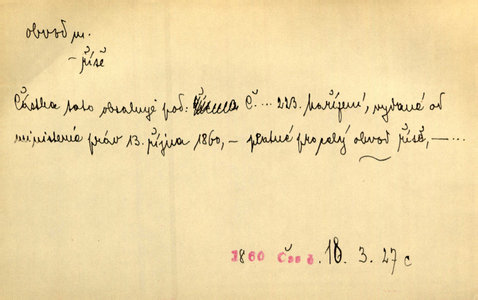 obvod m.
~ říše
Částka tato obsahuje pod: Č... 223. Nařízení, vydané od
ministeria práv 13. října 1860, – platné pro celý obvod říše, – ...
1860 Čes 6. 18. 3. 27 c